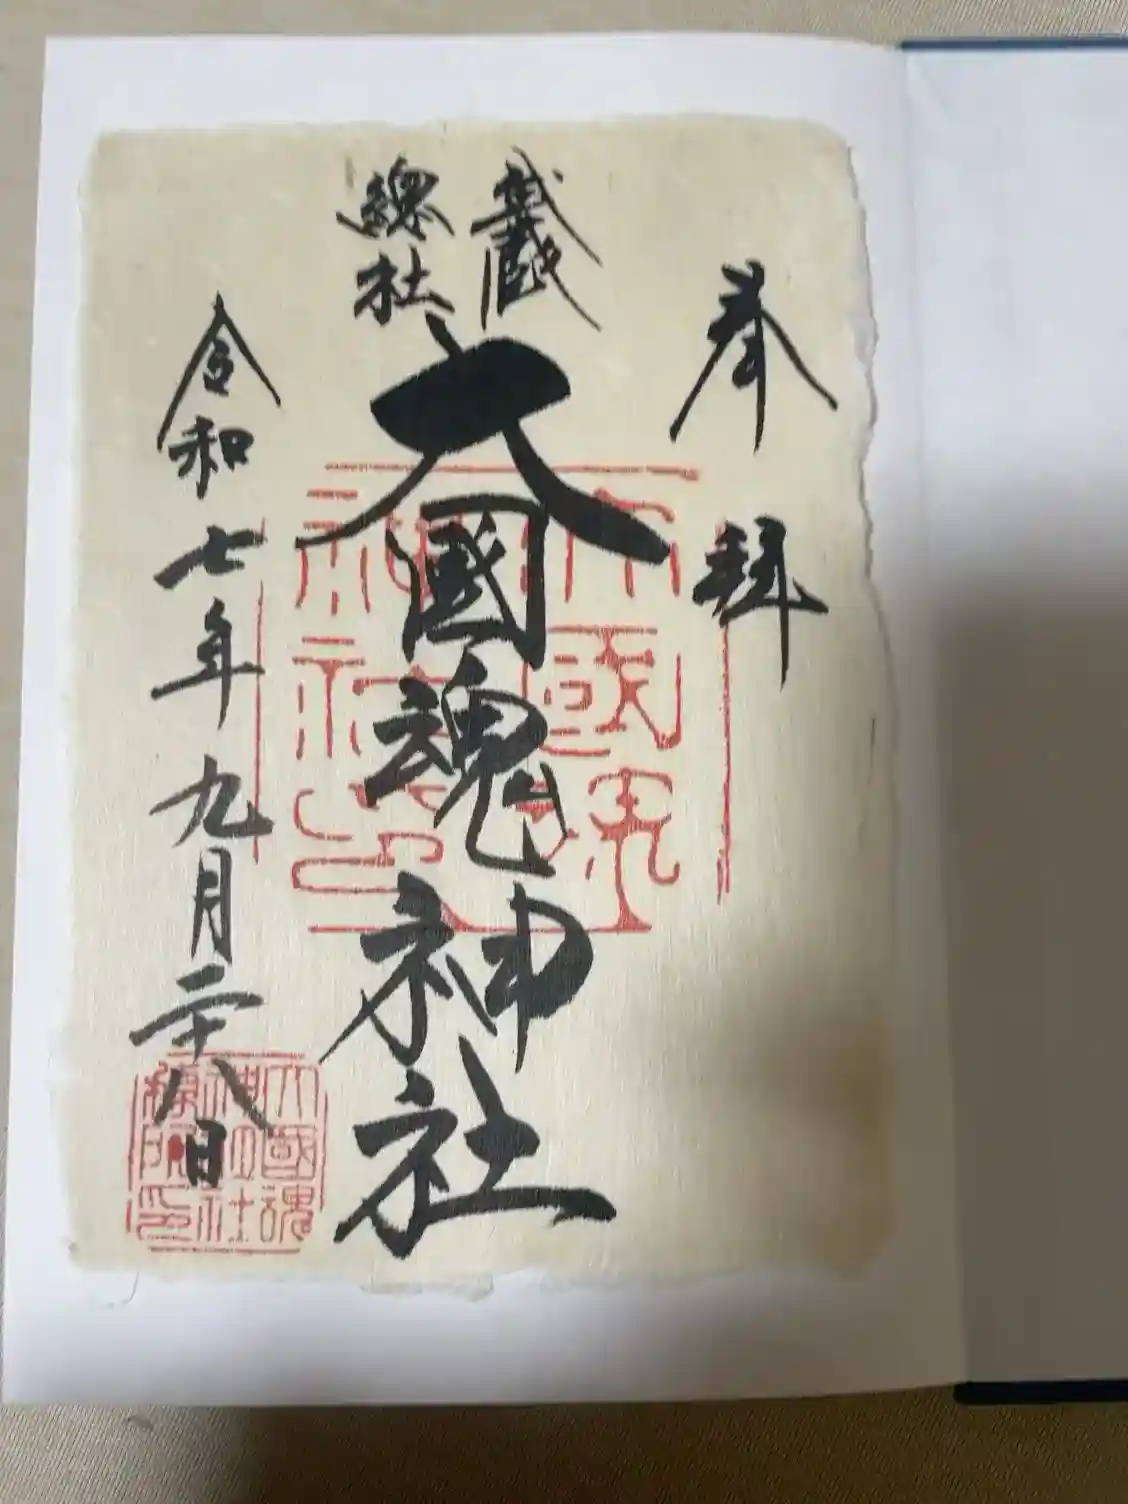 奉拝
武蔵
總社
大國魂神社
令和七年九月二十八日
大國魂
神社印
大國魂
神社